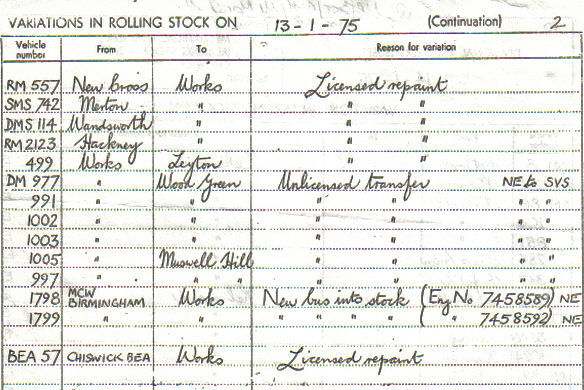 VARIATIONS IN ROLLING STOCK ON 13-1-75 (Continuation) 2
Vehicle number From To Reason for variation
RM 557 New Cross Works Licensed repaint
SMS 742 Merton " " "
DMS 114 Wandsworth " " "
RM 2123 Hackney " " "
499 Works Leyton " "
DM 977 " Wood Green Unlicensed transfer NE to SVS
991 " " " " "
1002 " " " " "
1003 " " " " "
1005 " Muswell Hill " " "
997 " " " " " "
1798 MCW BIRMINGHAM Works New bus into stock (Eng No 7458589) NE
1799 " " " " " " ( " 7458592) NE
BEA 57 CHISWICK BEA Works Licensed repaint